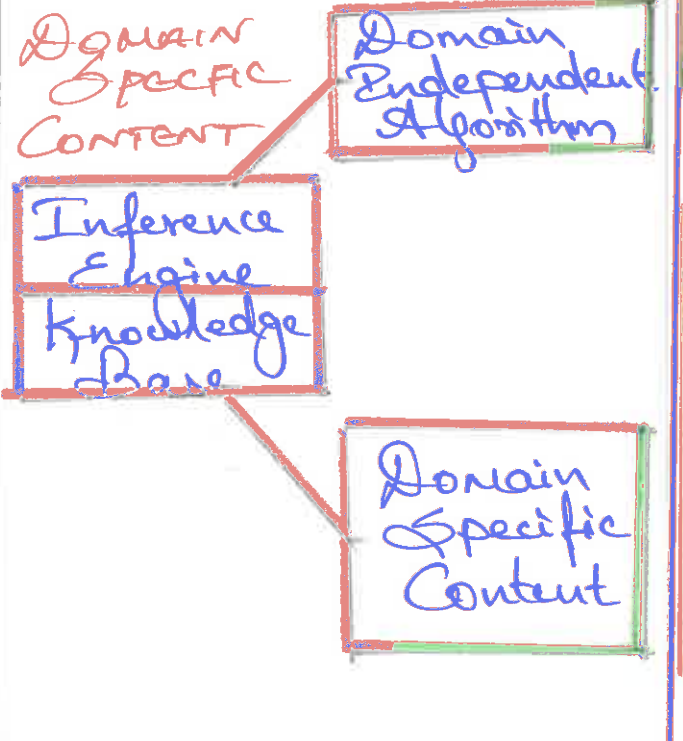 DOMAIN
SPECFIC
CONTENT
Domain
Independent
Algorithm
Inference
Engine
Knowledge
Base
Domain
Specific
Content